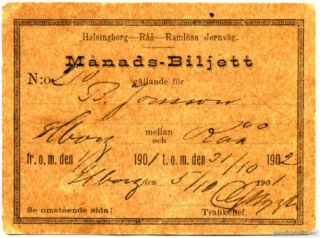 Helsingborg — Råå — Ramlösa Jernväg.
Månads-Biljett
N:o 210 gällande för
B. Jönsson
H.borg mellan och Råå
fr. o. m. den 1/ 1901 t. o. m. 31/10 1902
H.borg den 5/10 1901
Se omstående sida! Trafikchef.